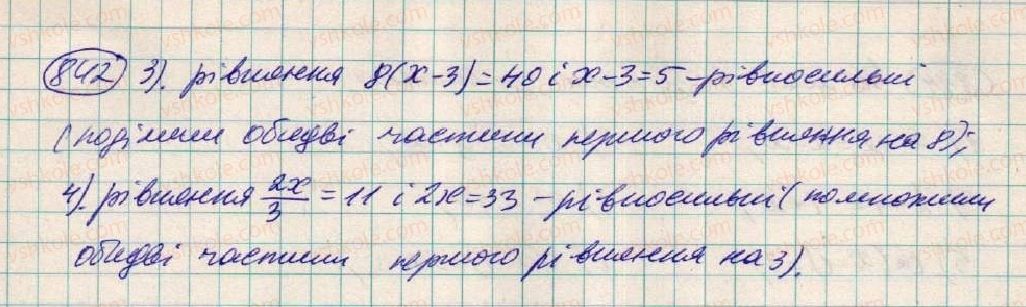 842 3). рівняння 8(x-3)=40 і x-3=5 - рівносильні
(поділили обидві частини першого рівняння на 8);
4). рівняння 2x/3 = 11 і 2x=33 - рівносильні (помножили
обидві частини першого рівняння на 3).